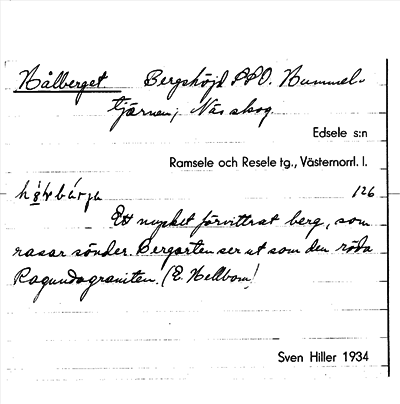 Hålberget. Bergshöjd SSO. Hummel-
tjärnen; Näs skog.
Edsele s:n
Ramsele och Resele tg., Västernorrl. l.
126
Ett mycket förvittrat berg, som
rasar sönder. Bergarten ser ut som den röda
Ragundagraniten. (E. Hellbom)
Sven Hiller 1934